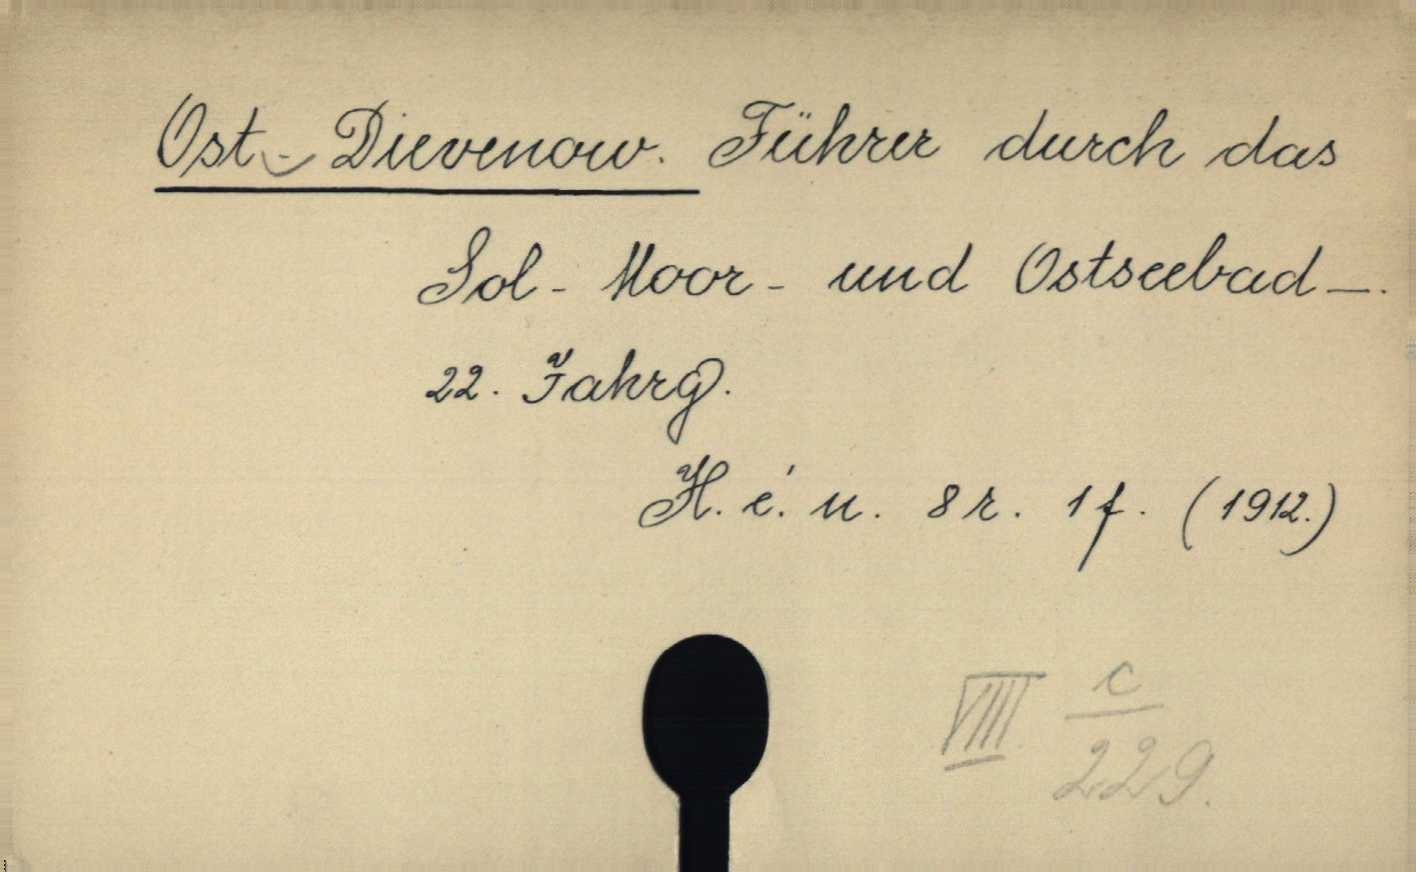 Ost-Dievenow. Führer durch das
Sol- Moor- und Ostseebad—.
22. Jahrg.
H. é. n. 8r. 1 f. (1912.)
VIII c/229.